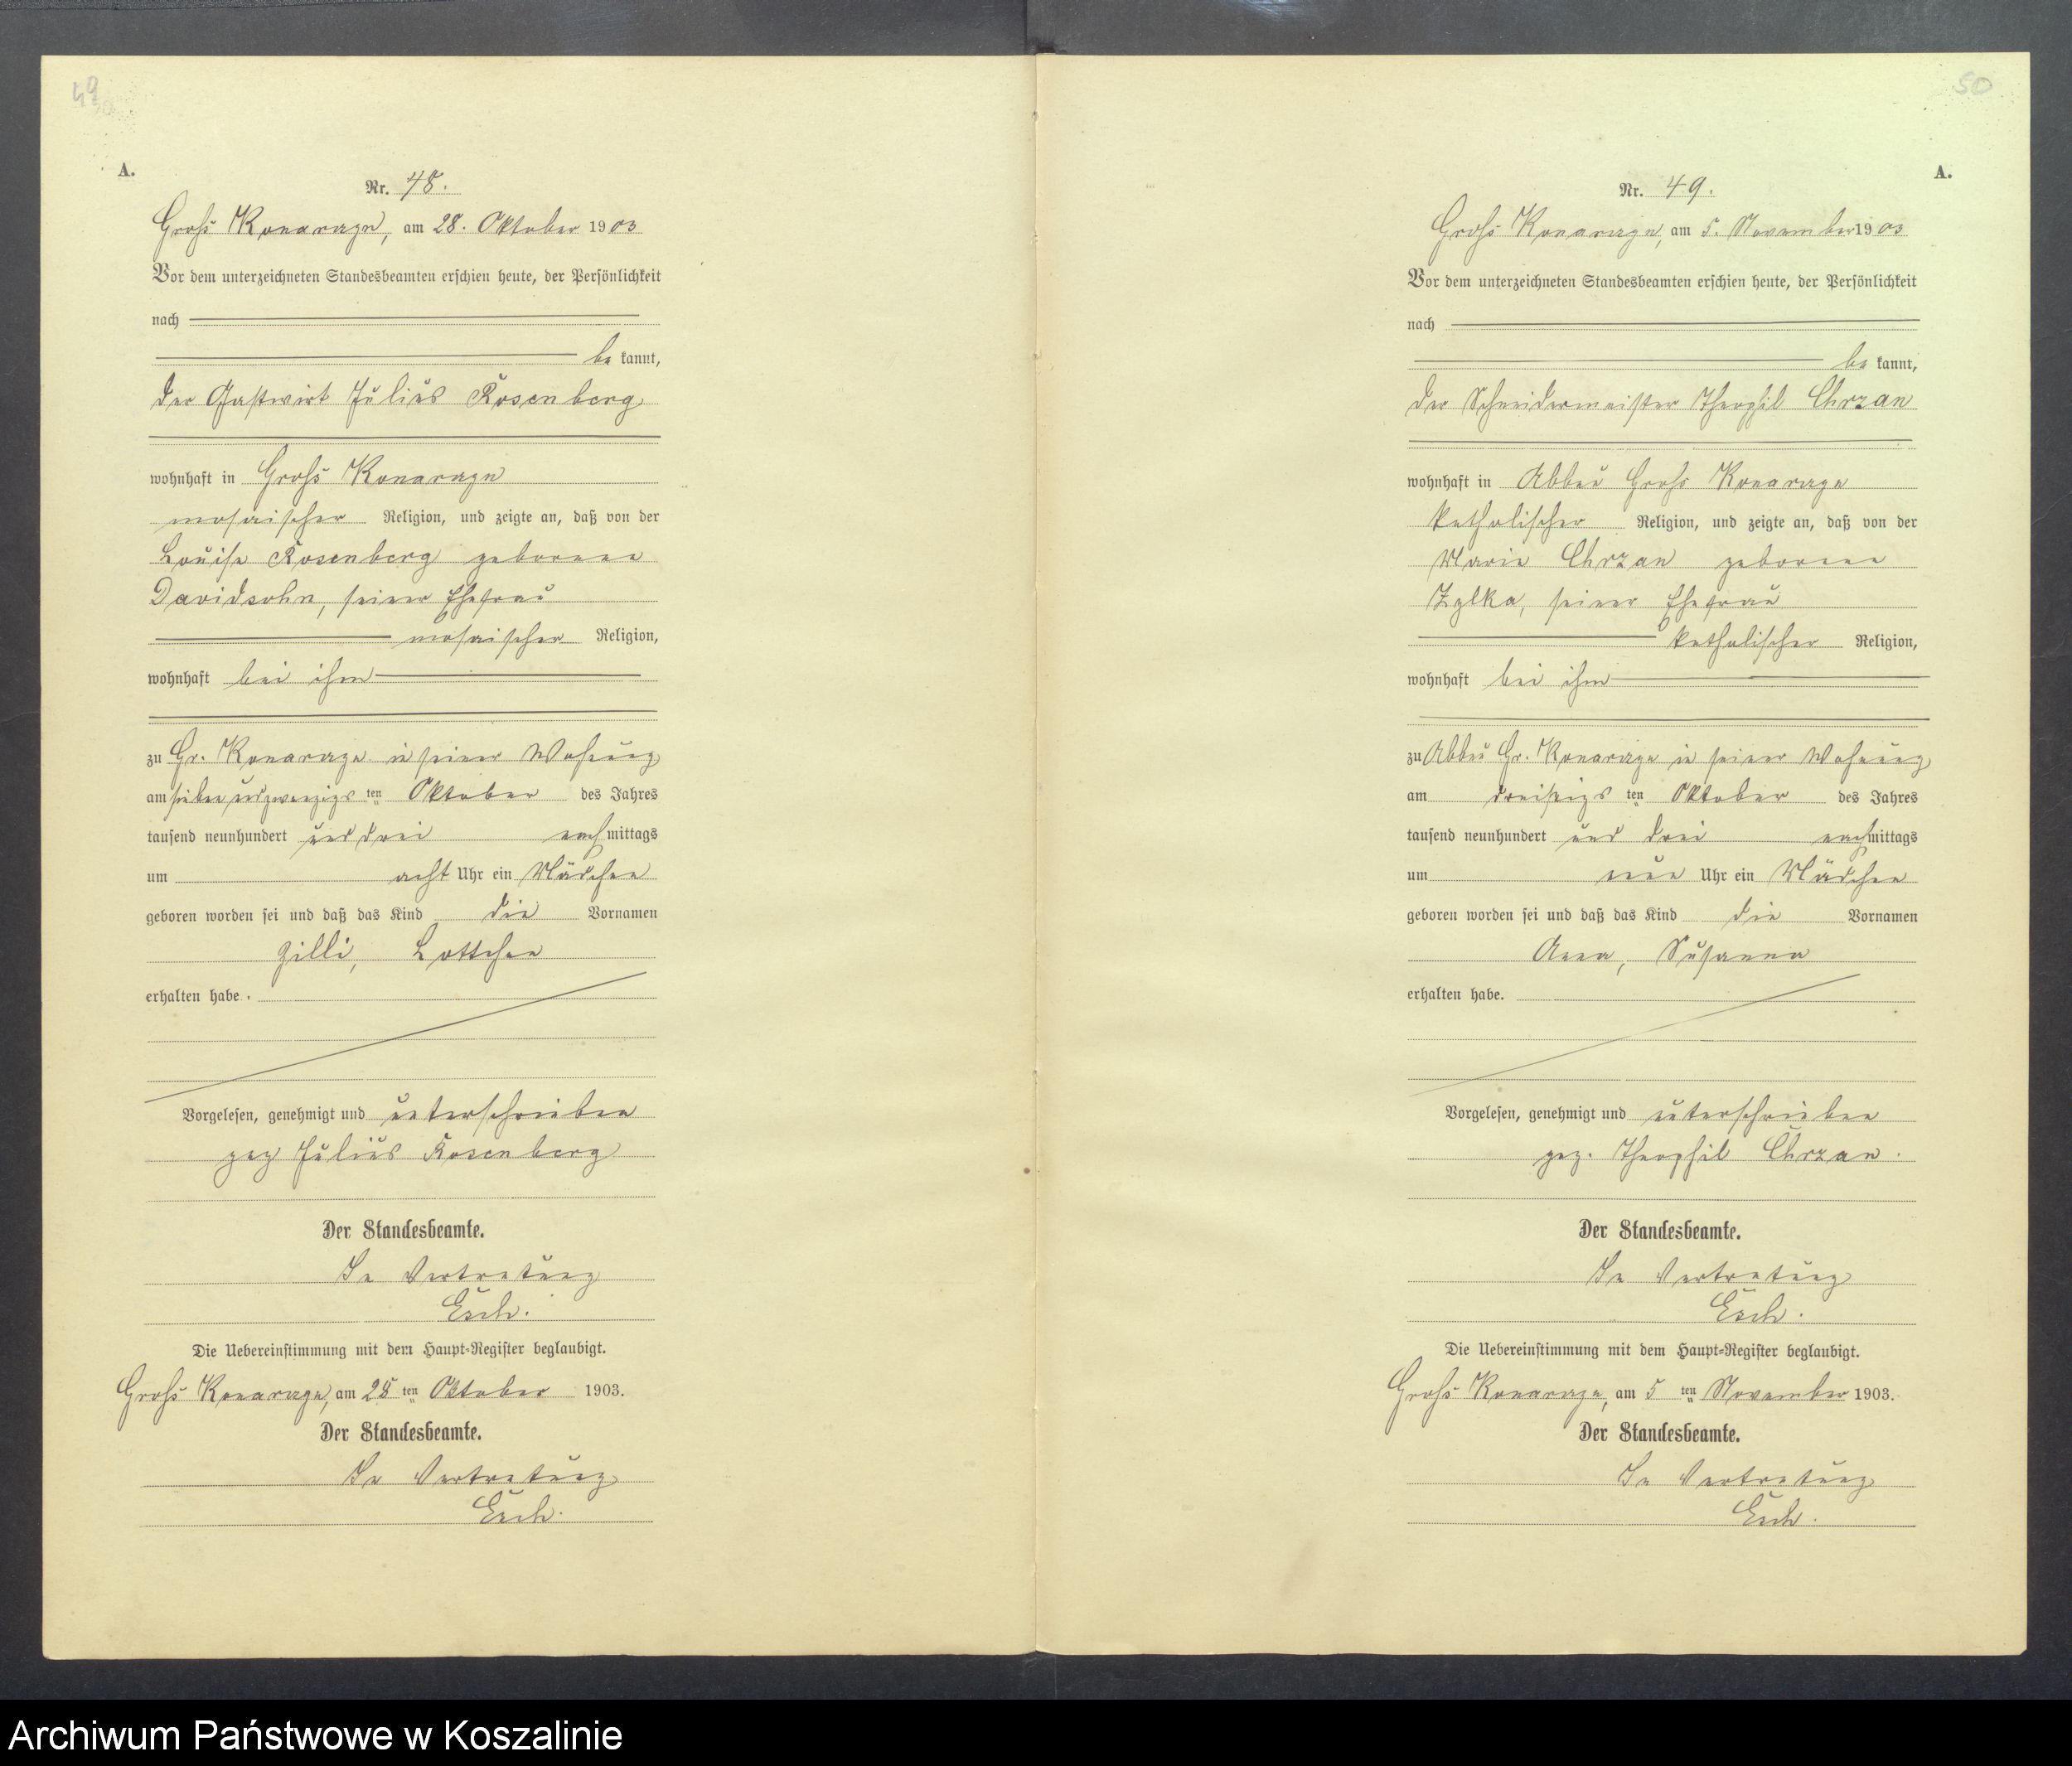 49
A.
Nr. 48.
Groß Konarzyn, am 28. Oktober 1903
Vor dem unterzeichneten Standesbeamten erschien heute, der Persönlichkeit
nach
be kannt,
der Gastwirt Julius Rosenberg
wohnhaft in Groß Konarzyn
mosaischer Religion, und zeigte an, daß von der
Louise Rosenberg geborene
Davidsohn, seiner Ehefrau
mosaischer Religion,
wohnhaft bei ihm
zu Gr. Konarzyn in seiner Wohnung
am sieben und zwanzigsten Oktober des Jahres
tausend neunhundert und drei nachmittags
um acht Uhr ein Mädchen
geboren worden sei und daß das Kind die Vornamen
Zilli, Lottchen
erhalten habe.
Vorgelesen, genehmigt und unterschrieben
gez Julius Rosenberg
Der Standesbeamte.
In Vertretung
Esch.
Die Uebereinstimmung mit dem Haupt-Register beglaubigt.
Groß Konarzyn, am 28 ten Oktober 1903.
Der Standesbeamte.
In Vertretung
Esch.
50
A.
Nr. 49.
Groß Konarzyn, am 5. November 1903
Vor dem unterzeichneten Standesbeamten erschien heute, der Persönlichkeit
nach
be kannt,
der Schneidermeister Theophil Chrzan
wohnhaft in Abbau Groß Konarzyn
katholischer Religion, und zeigte an, daß von der
Marie Chrzan geborene
Zylka, seiner Ehefrau
katholischer Religion,
wohnhaft bei ihm
zu Abbau Gr. Konarzyn in seiner Wohnung
am dreißigsten Oktober des Jahres
tausend neunhundert und drei nachmittags
um neun Uhr ein Mädchen
geboren worden sei und daß das Kind die Vornamen
Anna, Susanna
erhalten habe.
Vorgelesen, genehmigt und unterschrieben
gez. Theophil Chrzan.
Der Standesbeamte.
In Vertretung
Esch.
Die Uebereinstimmung mit dem Haupt-Register beglaubigt.
Groß Konarzyn, am 5 ten November 1903.
Der Standesbeamte.
In Vertretung
Esch.
Archiwum Państwowe w Koszalinie